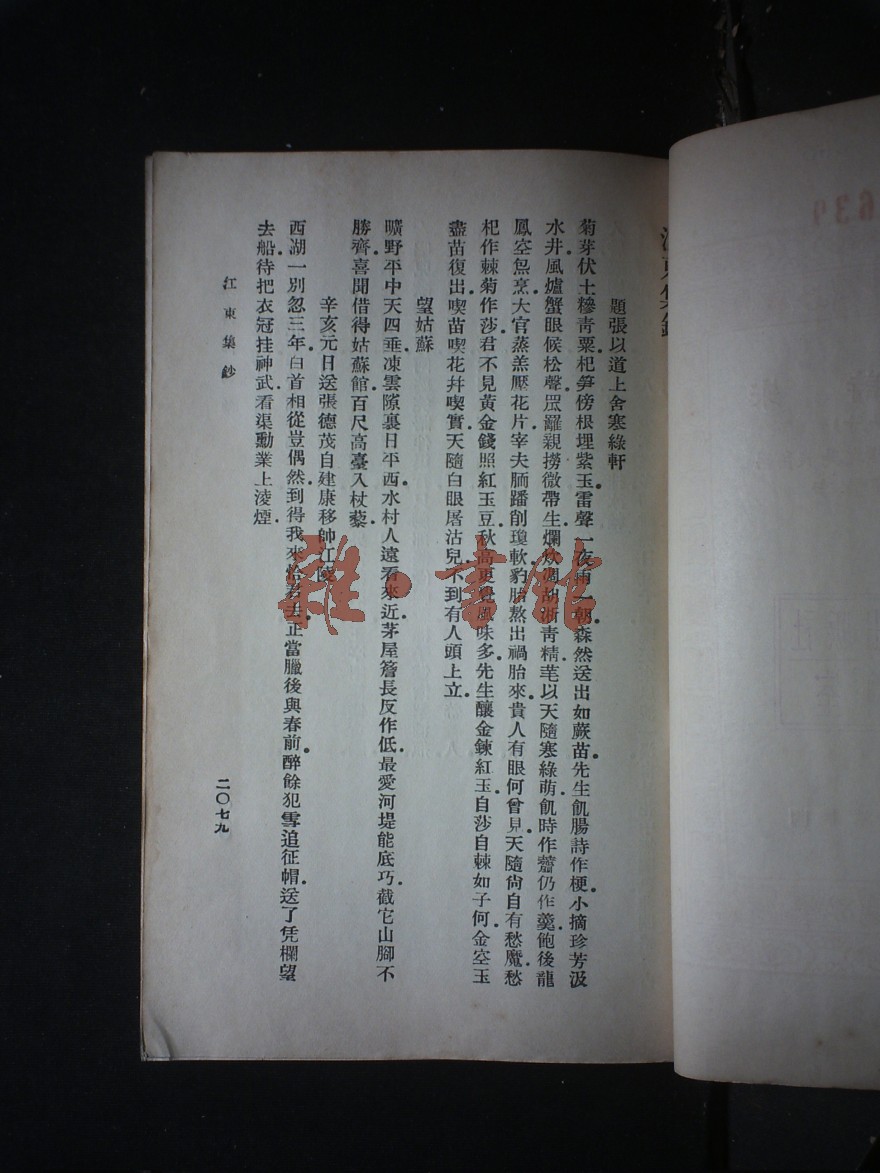 639
題張以道上舍寒綠軒
菊芽伏土糝靑粟。杞笋傍根埋紫玉。雷聲一夜雨一朝。森然送出如蕨苗。先生飢腸詩作梗。小摘珍芳汲
水井。風爐蟹眼候松聲。罛羅親撈微帶生。爛炊凋胡淅靑精。芼以天隨寒綠萌。飢時作虀仍作羹。飽後龍
鳳空炰烹。大官蒸羔壓花片。宰夫胹蹯削瓊軟。豹胎熬出禍胎來。貴人有眼何曾見。天隨尙自有愁魔。愁
杞作棘菊作莎。君不見黃金錢照紅玉豆。秋高更覺風味多。先生釀金鍊紅玉。自莎自棘如子何。金空玉
盡苗復出。喫苗喫花幷喫實。天隨白眼屠沽兒。不到有人頭上立。
望姑蘇
曠野平中天四垂。凍雲隙裏日平西。水村人遠看來近。茅屋簷長反作低。最愛河堤能底巧。截它山腳不
勝齊。喜聞借得姑蘇館。百尺高臺入杖藜。
辛亥元日送張德茂自建康移帥江陵
西湖一別忽三年。白首相從豈偶然。到得我來恰君去。正當臘後與春前。醉餘犯雪追征帽。送了凭欄望
去船。待把衣冠挂神武。看渠勳業上淩煙。
江東集鈔
二〇七九
雜·書館